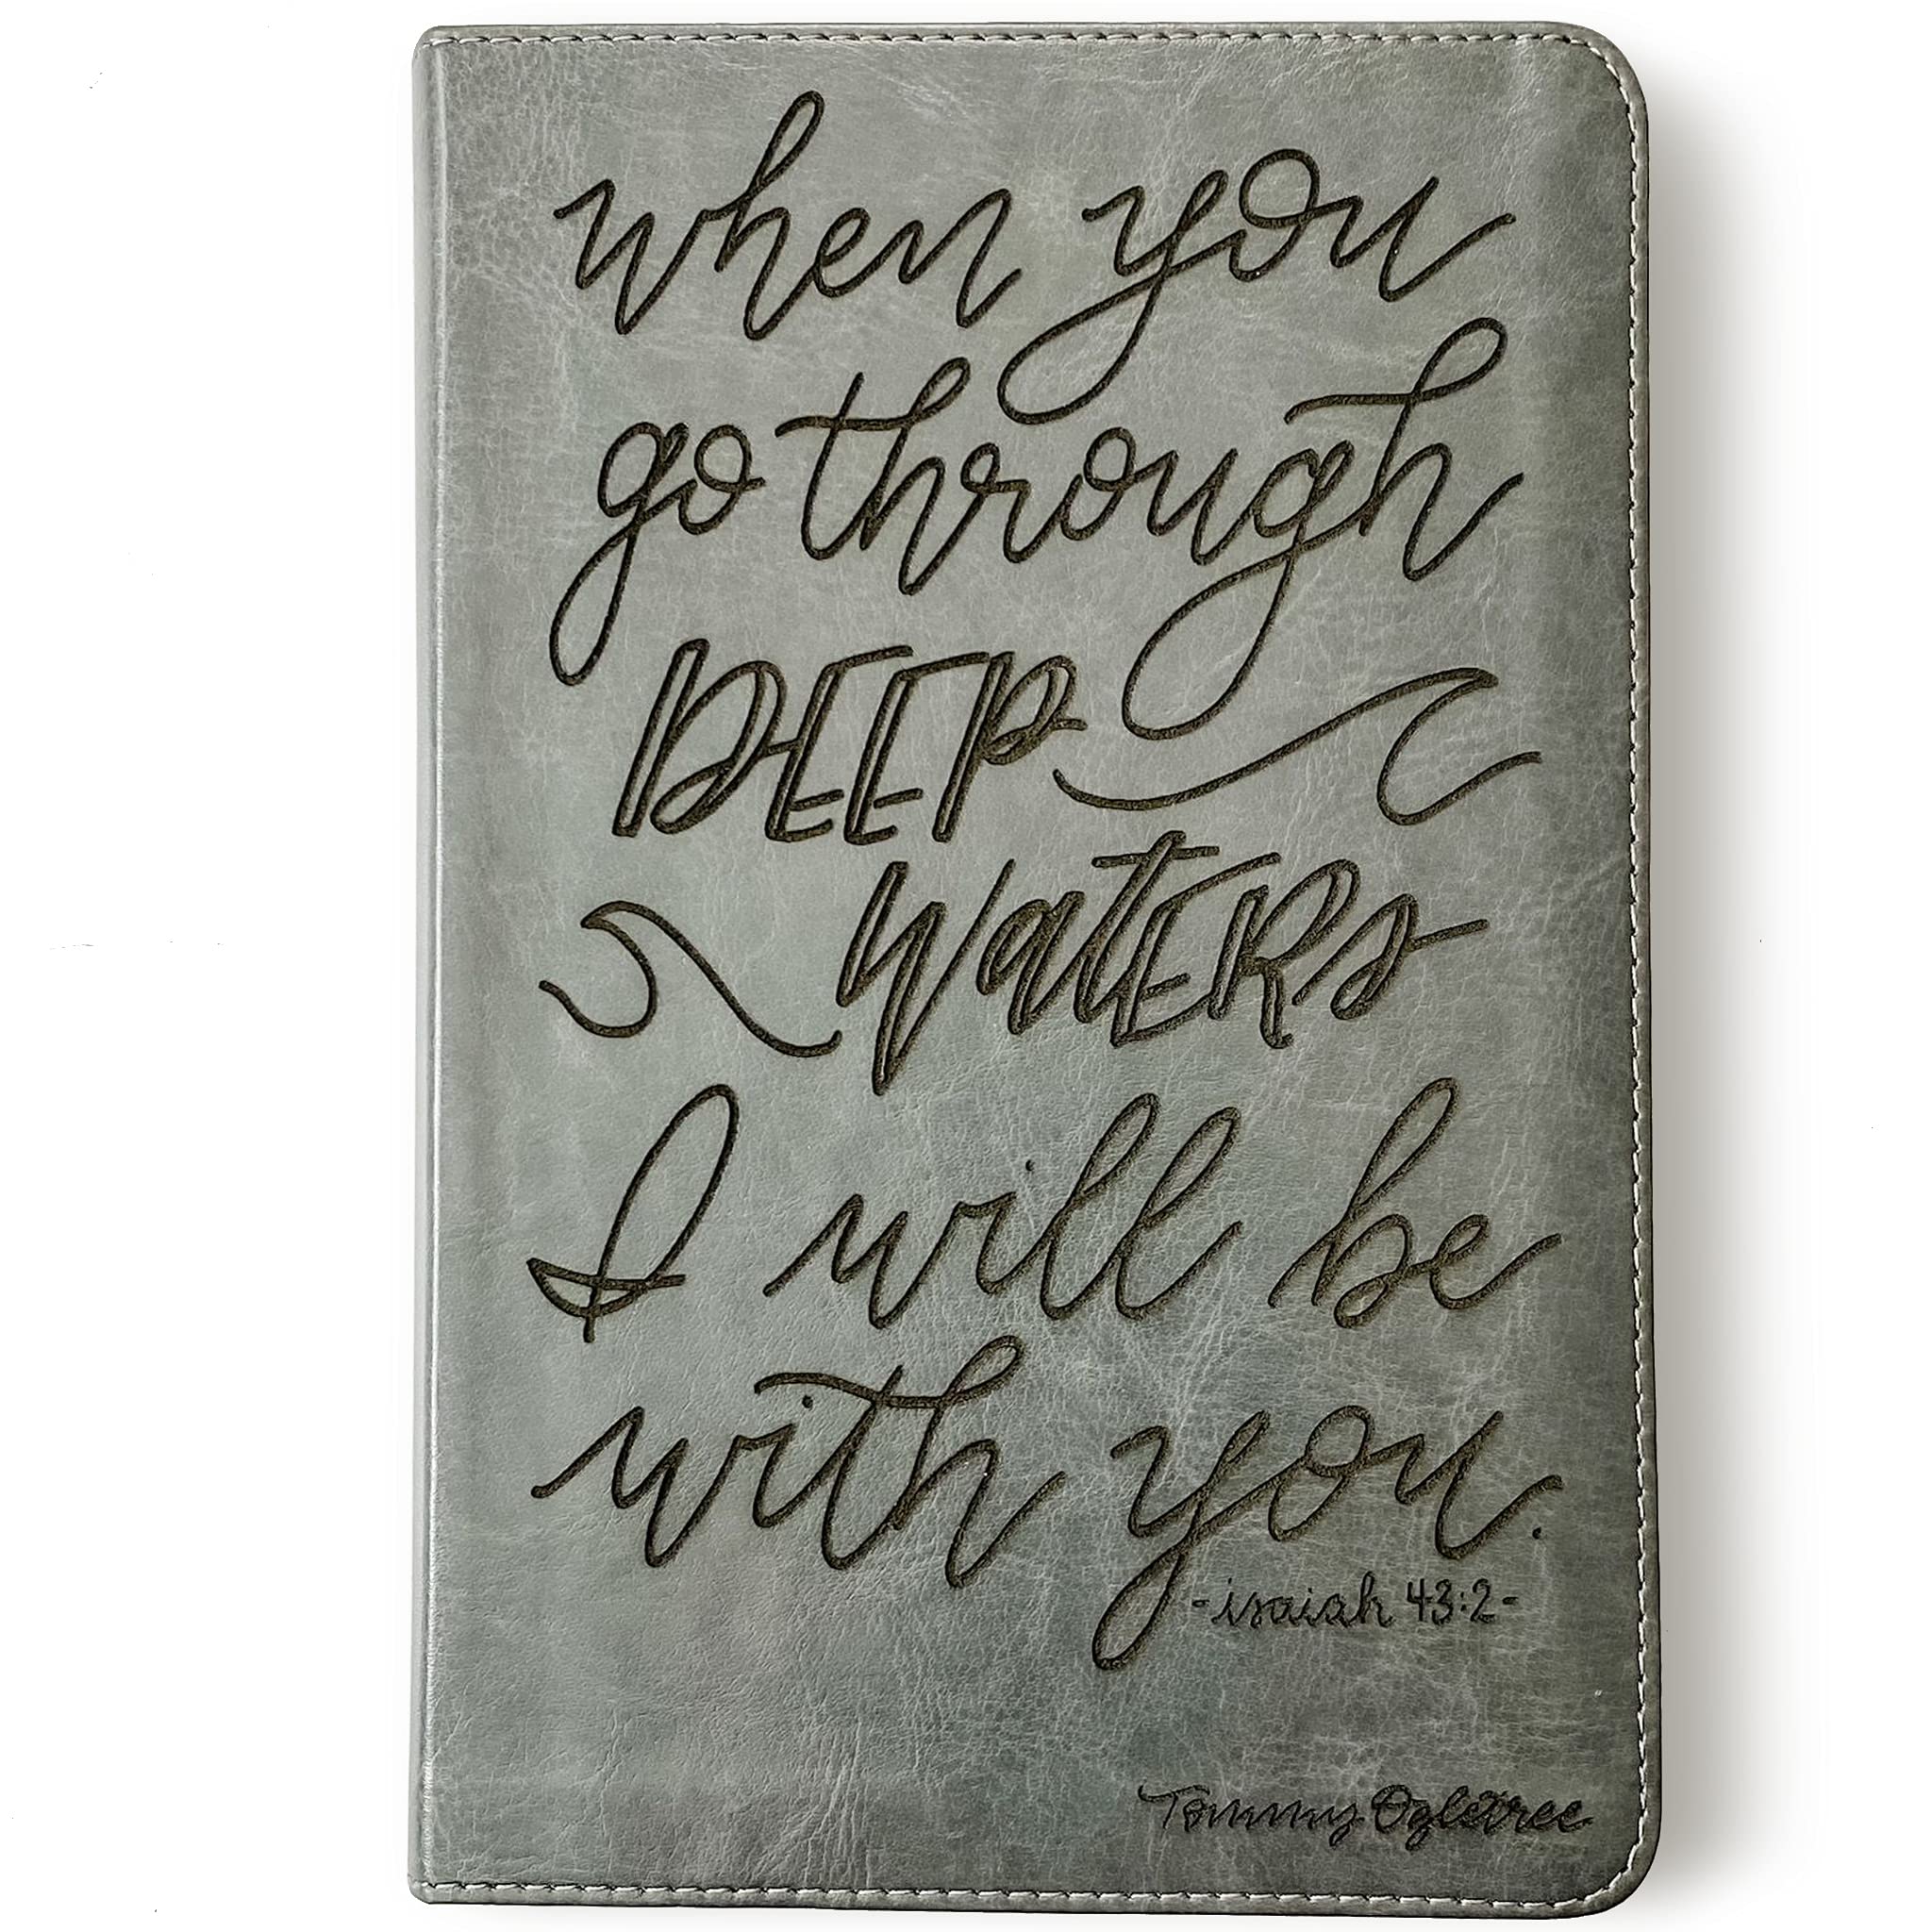 when you
go through
DEEP
WatERs
I will be
with you.
-isaiah 43:2-
Tommy Ogletree